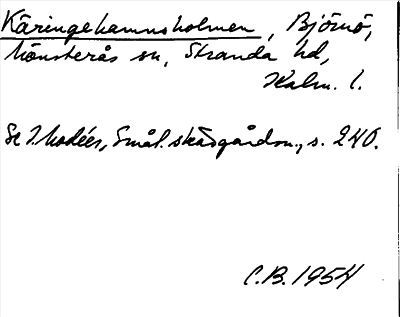 Käringehamnsholmen, Björnö,
Mönsterås sn, Stranda hd,
Kalm. l.
Se I. Modéer, Smål. skärgårdsn., s. 240.
C.B. 1954